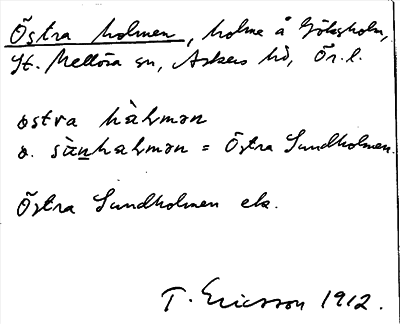 Östra holmen, holme å Göksholm,
St. Mellösa sn, Askers hd, Ör. l.
østra hàlmən
ø. sùnhalmən = Östra Sundholmen.
Östra Sundholmen ek.
T. Ericsson 1912.